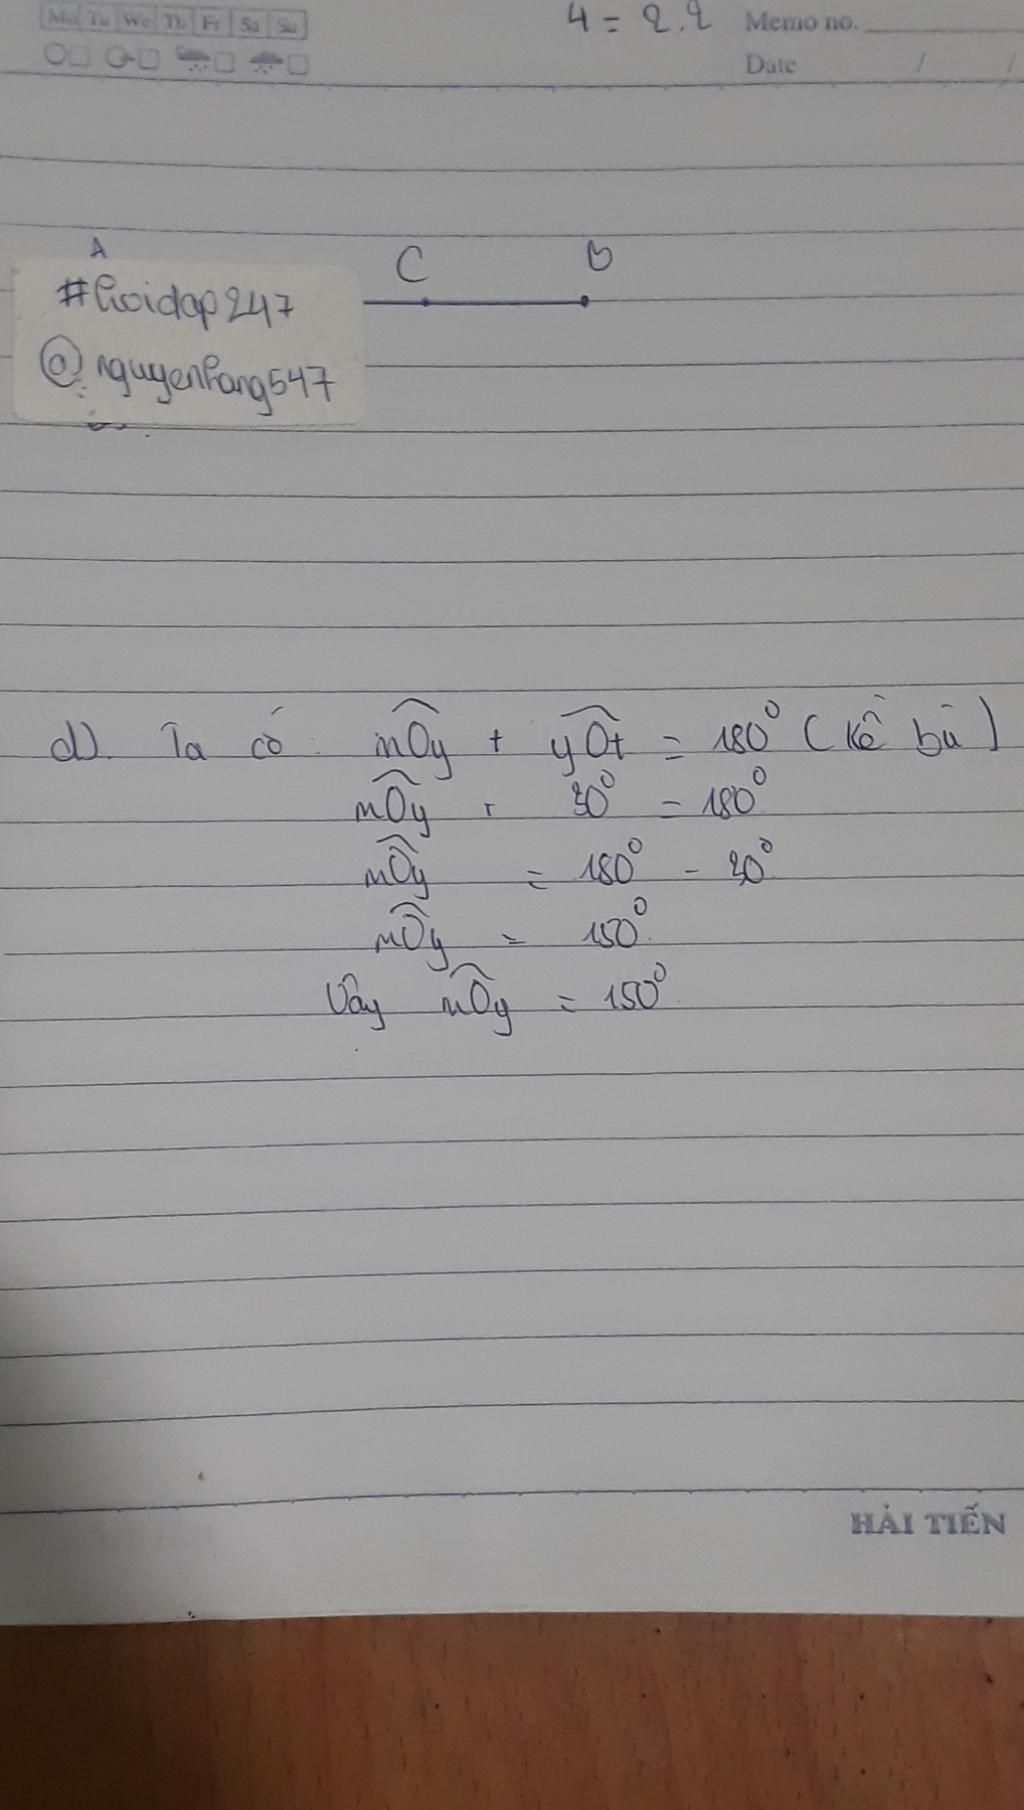 Mo Tu We Th Fr Sa Su
4 = 2.2
Memo no.
Date / /
A
C
B
#hoidap247
@nguyenhang547
d) Ta có: mÔy + yÔt = 180° (kề bù)
mÔy + 30° = 180°
mÔy = 180° - 30°
mÔy = 150°.
Vậy mÔy = 150°
HẢI TIẾN